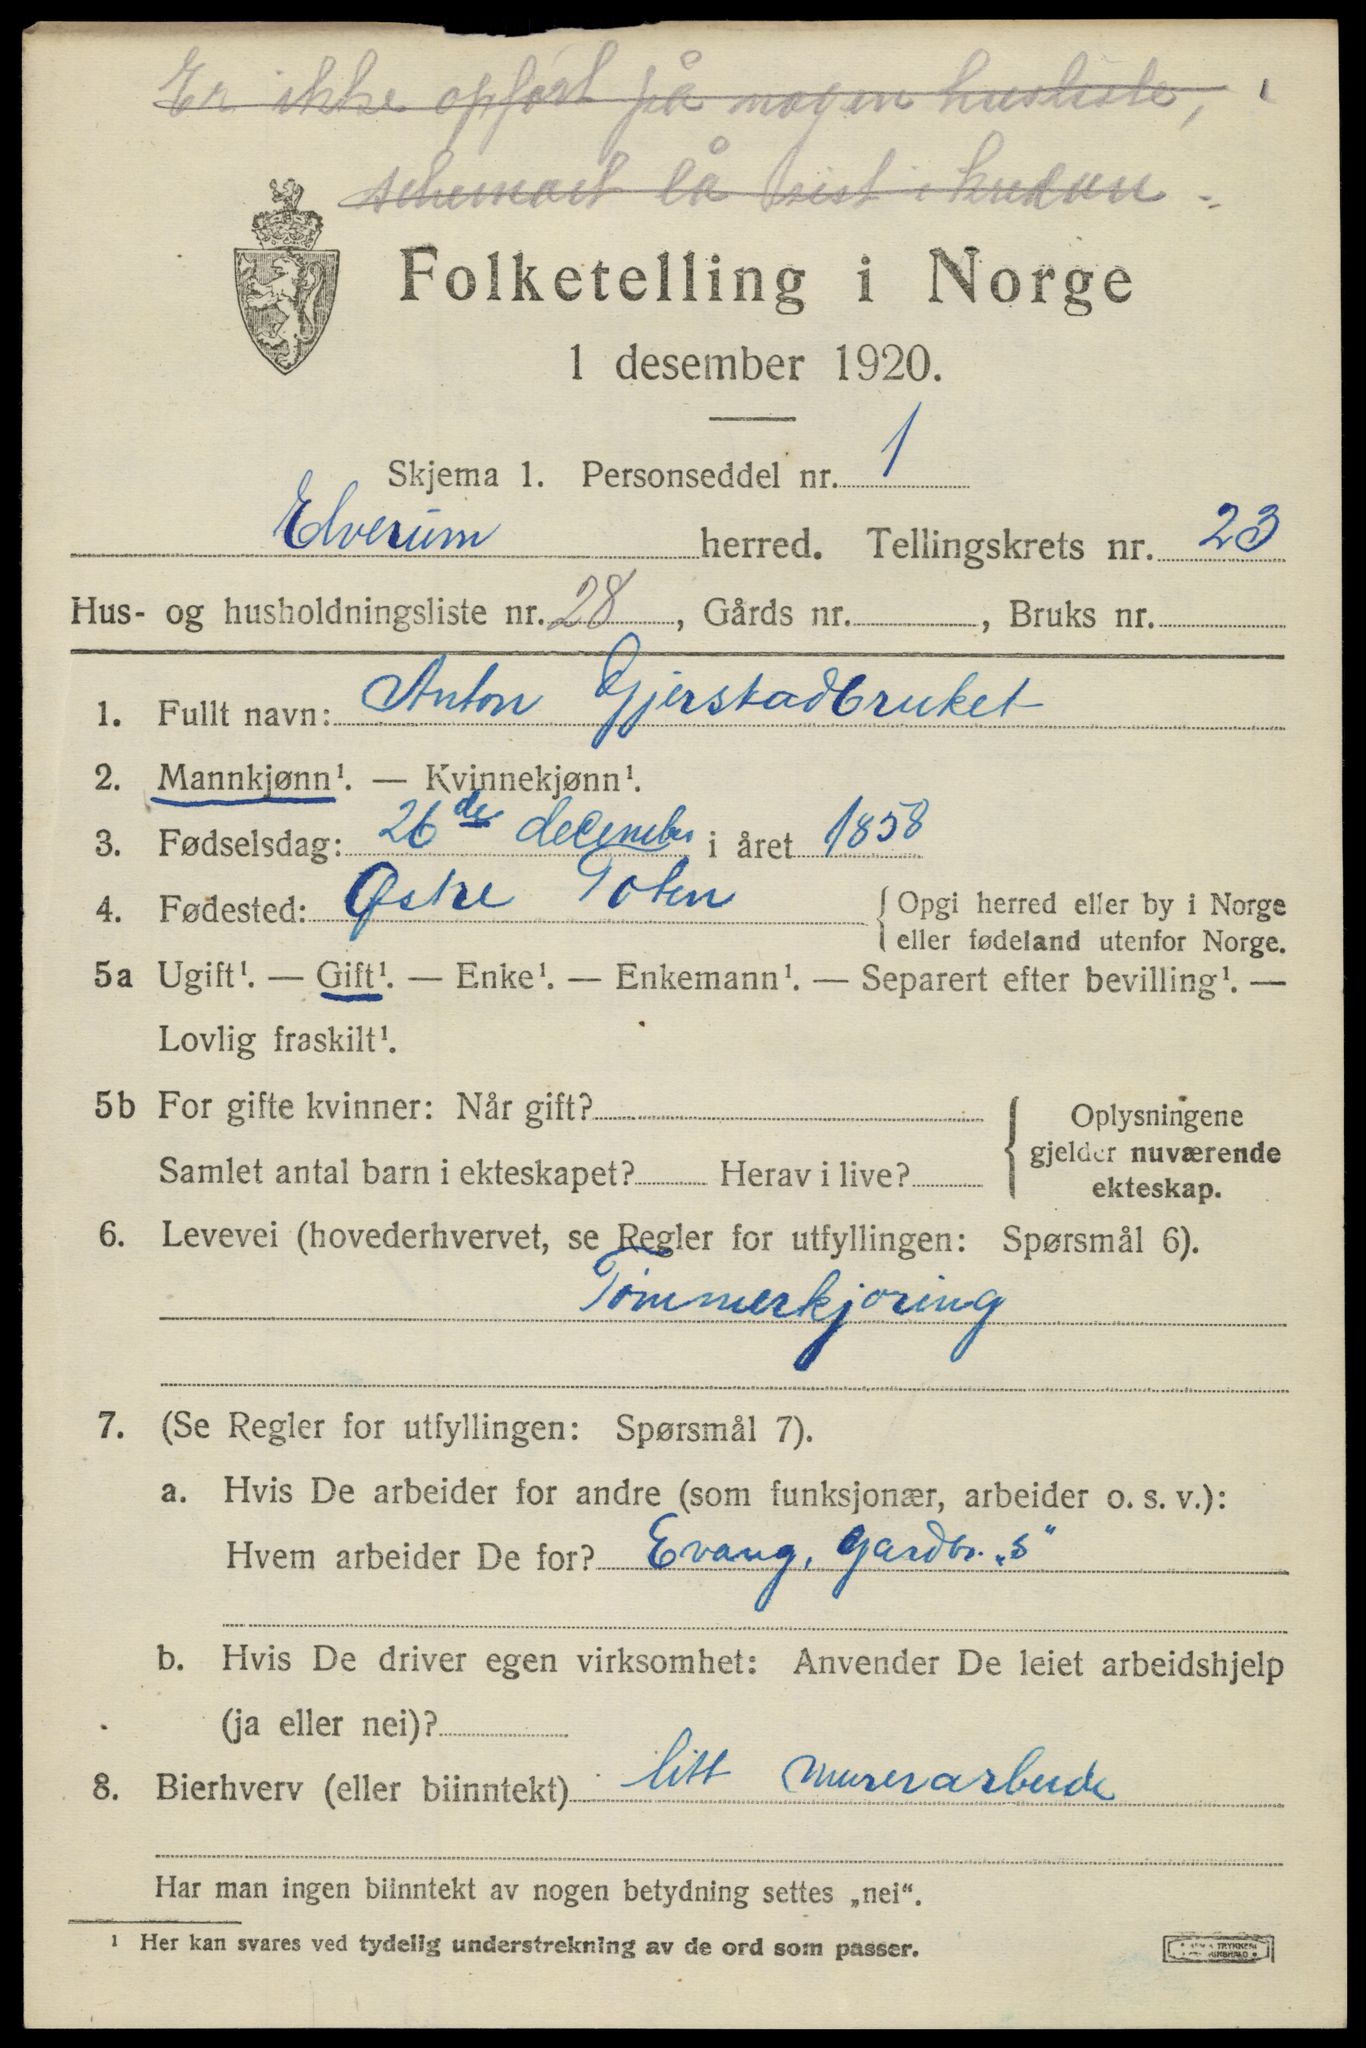 Er ikke opført på nogen husliste,
schemaet lå sist i
Folketelling i Norge
1 desember 1920.
Skjema 1. Personseddel nr. 1
Elverum herred. Tellingskrets nr. 23
Hus- og husholdningsliste nr. 28, Gårds nr. , Bruks nr.
1. Fullt navn: Anton Gjerstadbruket
2. Mannkjønn¹. — Kvinnekjønn¹.
3. Fødselsdag: 26de december i året 1858
4. Fødested: Østre Toten { Opgi herred eller by i Norge
eller fødeland utenfor Norge.
5a Ugift¹. — Gift¹. — Enke¹. — Enkemann¹. — Separert efter bevilling¹. —
Lovlig fraskilt¹.
5b For gifte kvinner: Når gift? { Oplysningene
gjelder nuværende
Samlet antal barn i ekteskapet? Herav i live?
ekteskap.
6. Levevei (hovederhvervet, se Regler for utfyllingen: Spørsmål 6).
Tømmerkjøring
7. (Se Regler for utfyllingen: Spørsmål 7).
a. Hvis De arbeider for andre (som funksjonær, arbeider o. s. v.):
Hvem arbeider De for? Evang, Gardbr. „s“
b. Hvis De driver egen virksomhet: Anvender De leiet arbeidshjelp
(ja eller nei)?
8. Bierhverv (eller biinntekt) litt murerarbeide
Har man ingen biinntekt av nogen betydning settes „nei“.
¹ Her kan svares ved tydelig understrekning av de ord som passer.